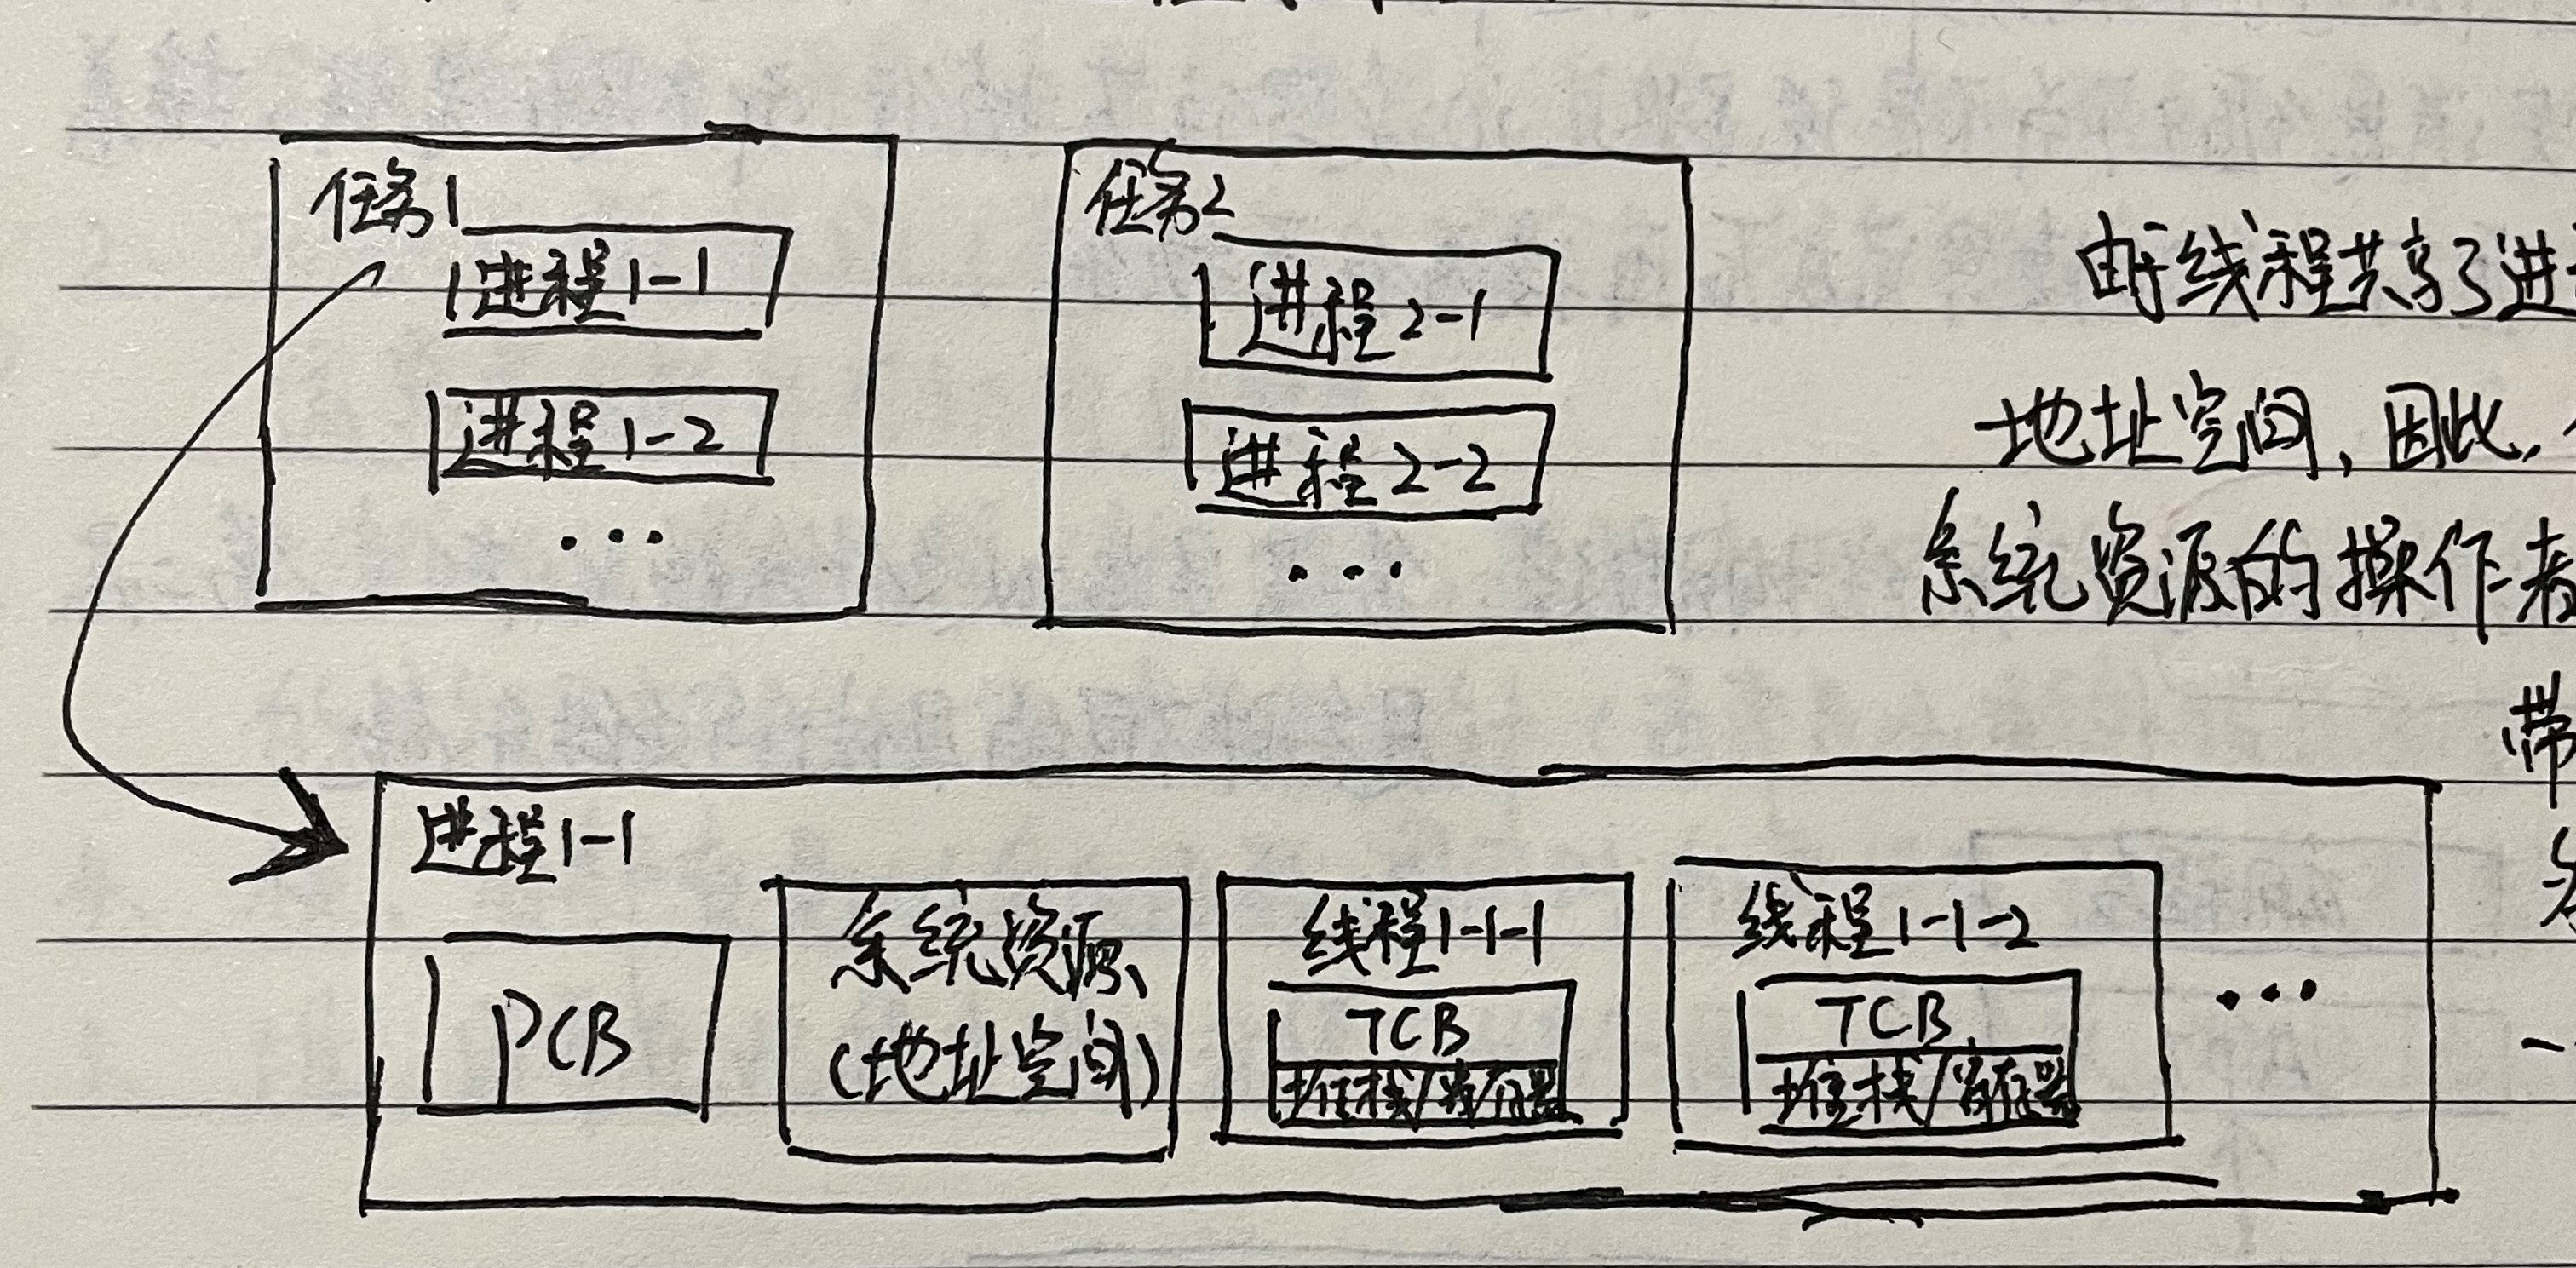 任务1
进程1-1
进程1-2
...
任务2
进程2-1
进程2-2
...
由于线程共享了进
地址空间,因此,
系统资源的操作者
带
进程1-1
PCB
系统资源
(地址空间)
线程1-1-1
TCB
堆栈/寄存器
线程1-1-2
TCB
堆栈/寄存器
...